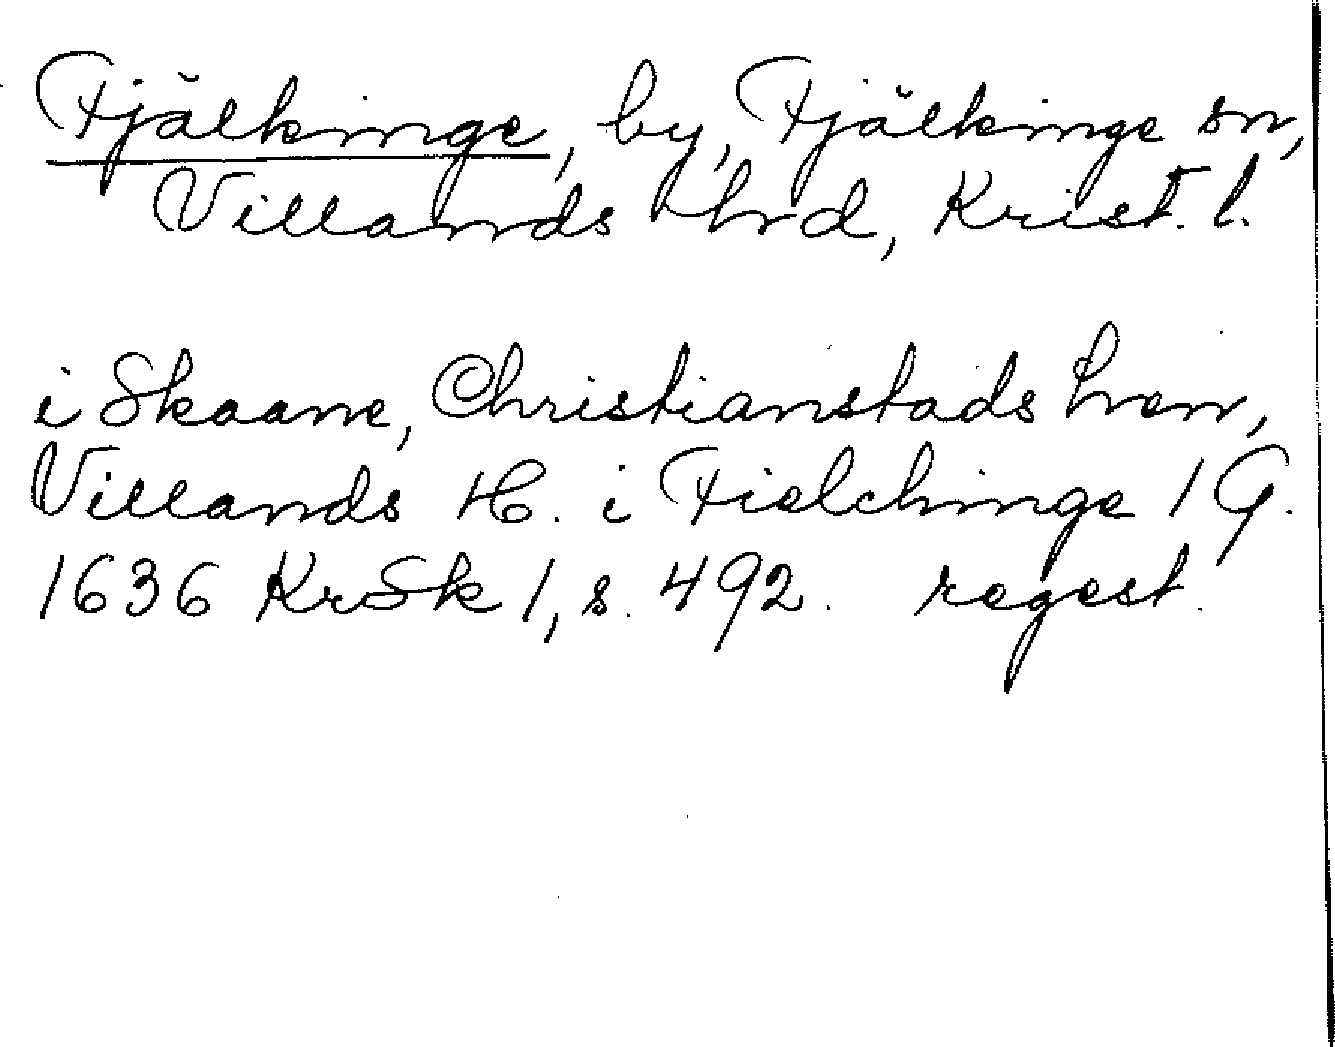 Fjälkinge, by, Fjälkinge sn,
Villands hrd, Krist. l.
i Skaane, Christianstads Len,
Villands H. i Fielchinge 1 G.
1636 KrSk 1, s. 492. regest.